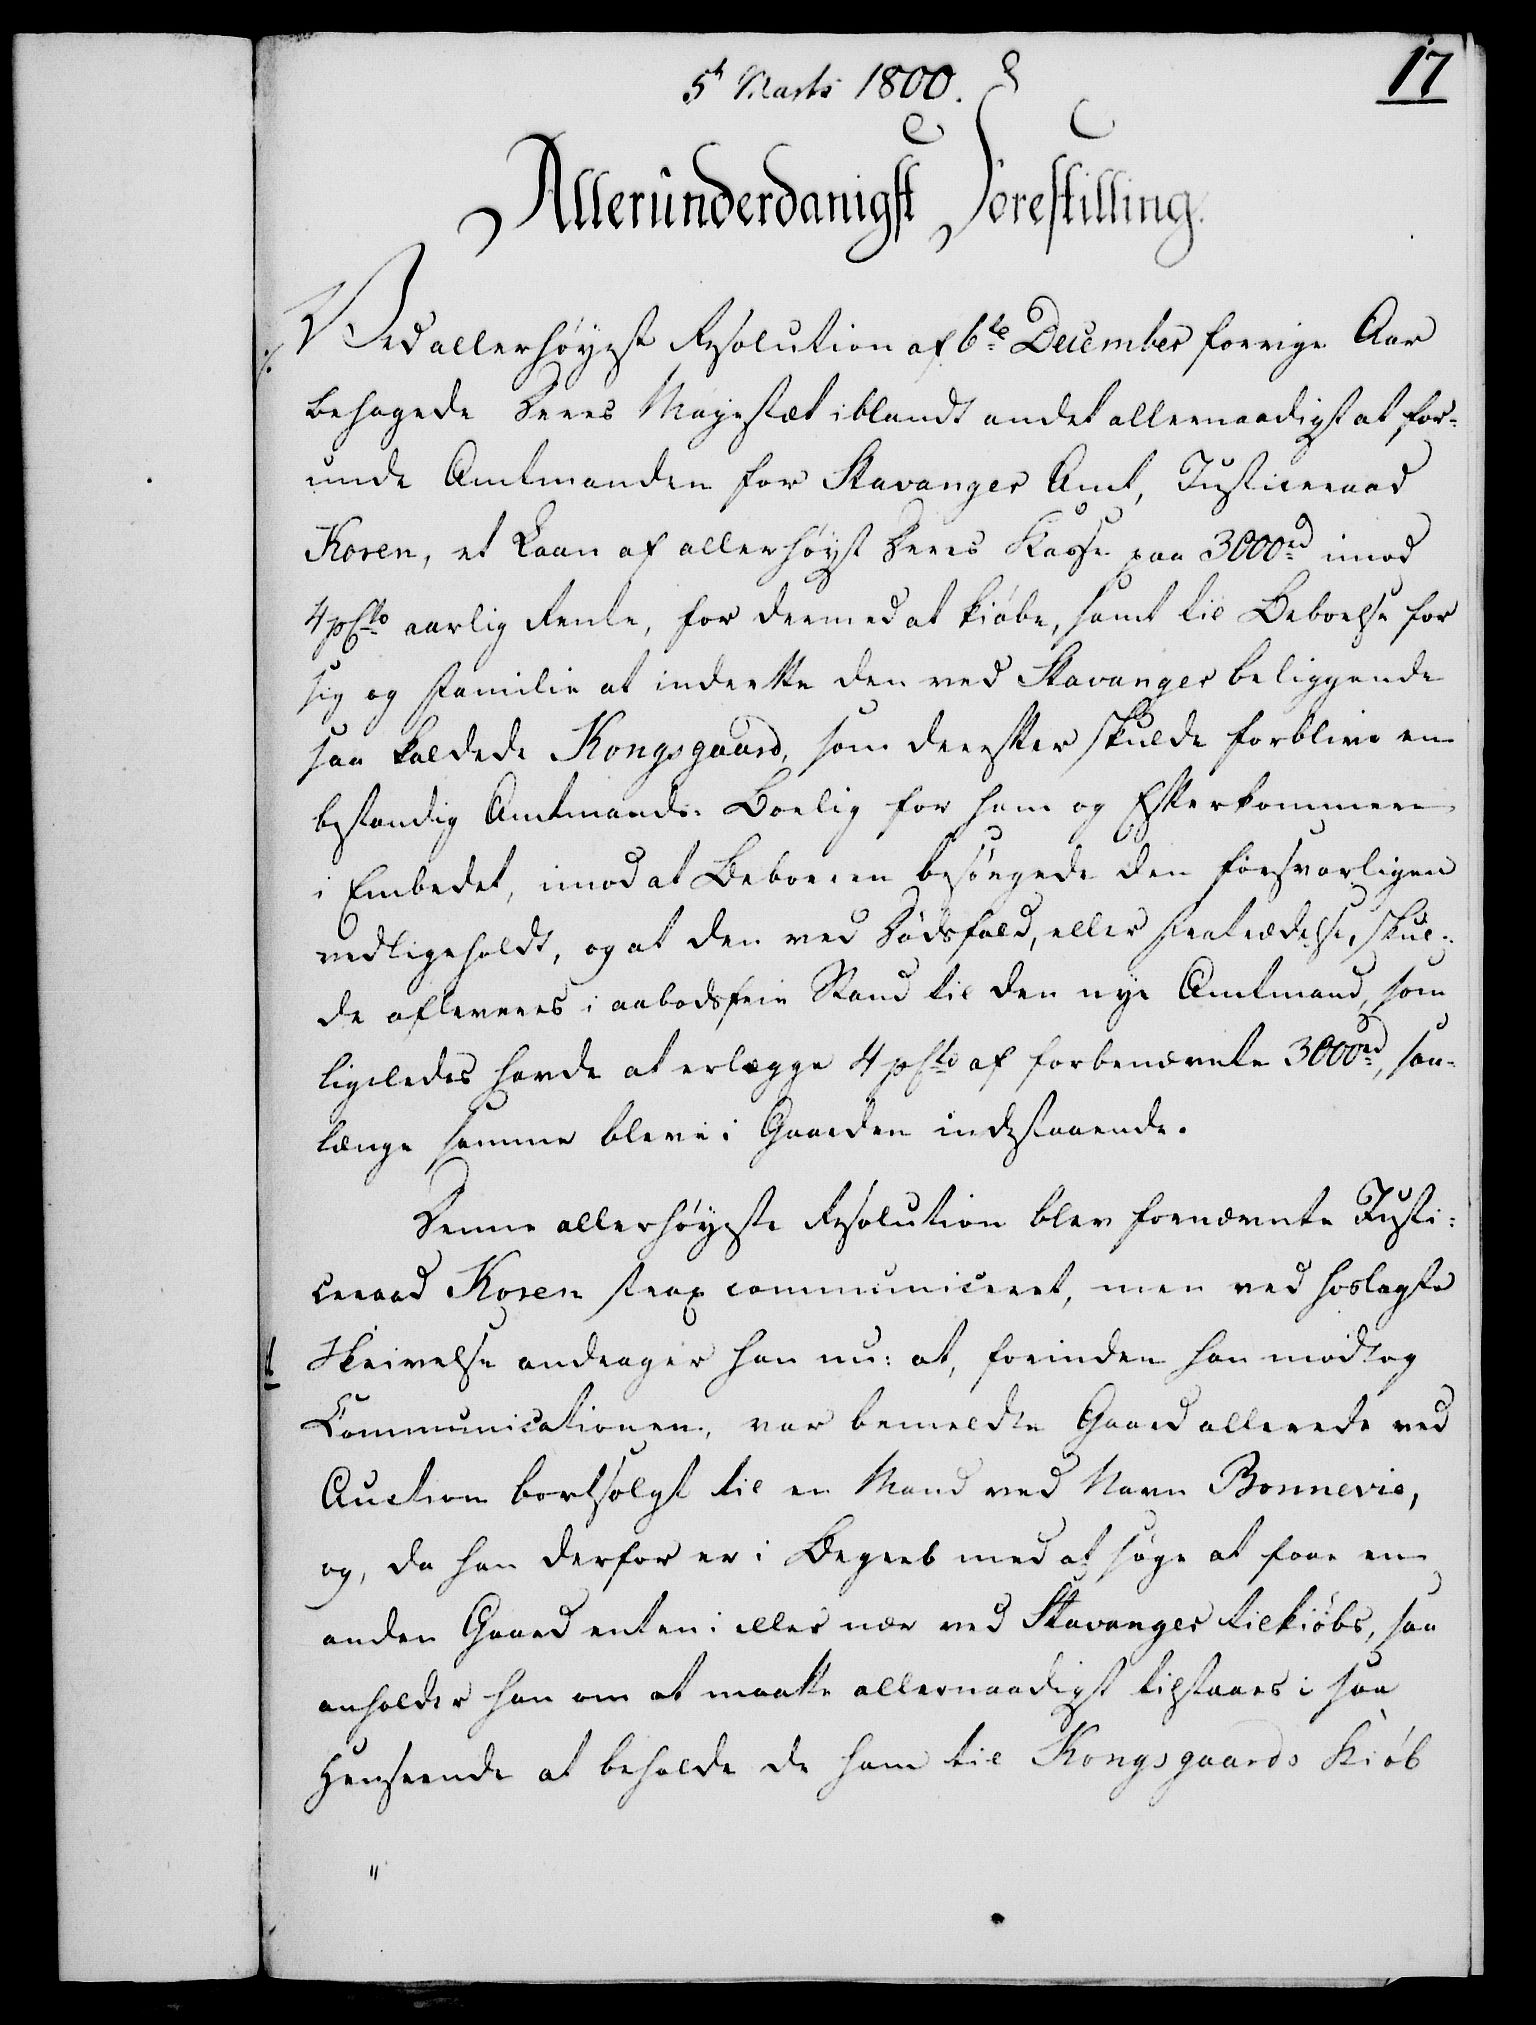 5t Marts 1800.
17
Allerunderdanigst Forestilling.
Ved allerhöyeste Resolution af 6te December forrige Aar
behagede Deres Majestæt iblandt andet allernaadigst at for-
unde Amtmanden for Stavanger Amt, Justiceraad
Koren, et Laan af allerhöyst Deres Kasse paa 3000rd imod
4 pCto aarlig Rente, for dermed at kiöbe, samt til Beboelse for
sig og Familie at indrette den ved Stavanger beliggende
saa kaldede Kongsgaard, som derefter skulde forblive en
bestandig Amtmands-Boelig for ham og Efterkommere
i Embedet, imod at Beboeren besörgede den forsvarligen
vedligeholdt, og at den ved Dödsfald, eller Fratrædelse, skul-
de afleveres i aabodsfrie Stand til den nye Amtmand, som
ligeledes havde at erlægge 4 pCto af forbenævnte 3000rd, saa-
længe samme bleve i Gaarden indestaaende.
Denne allerhöyeste Resolution blev fornævnte Justi-
ceraad Koren strax communiceret, men ved hoslagte
Skrivelse andrager han nu: at, forinden han modtog
Communicationen, var bemeldte Gaard allerede ved
Auction bortsolgt til en Mand ved Navn Bonnevie,
og, da han derfor er i Begreb med at söge at faae en
anden Gaard enten i eller nær ved Stavanger tilkiöbs, saa
anholder han om at maatte allernaadigst tilstaaes i saa
Henseende at beholde de ham til Kongsgaards Kiöb
"